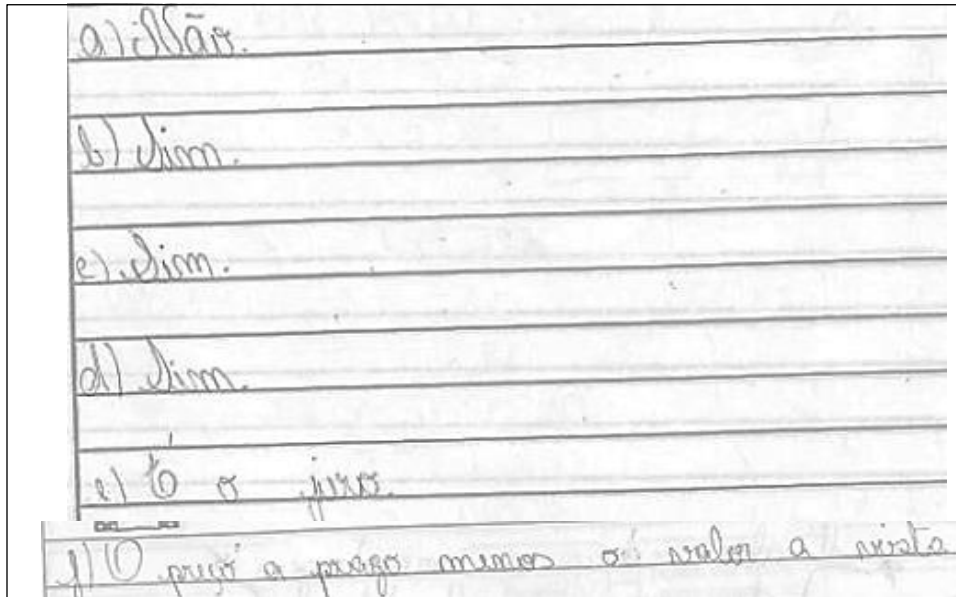 a) Não.
b) Sim.
c) Sim.
d) Sim.
e) É o juro.
f) O preço a prazo menos o valor a vista